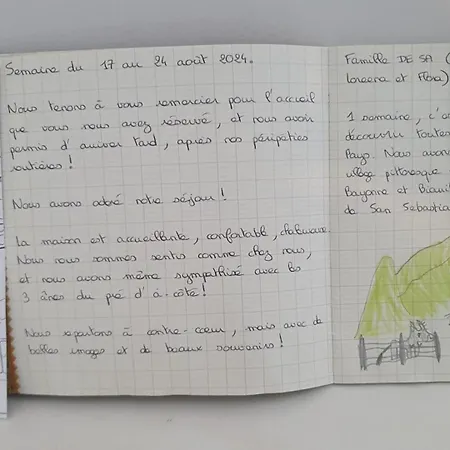 Semaine du 17 au 24 août 2024.
Nous tenons à vous remercier pour l'accueil
que vous nous avez réservé, et nous avoir
permis d'arriver tard, après nos péripéties
routières !
Nous avons adoré notre séjour !
La maison est accueillante, confortable, chaleureuse.
Nous nous sommes sentis comme chez nous,
et nous avons même sympathisé avec les
3 ânes du pré d'à-côté !
Nous repartons à contre-cœur, mais avec de
belles images et de beaux souvenirs !
Famille DE SA (
et Flora)
1 semaine, c'
découvrir toutes
Pays. Nous avons
village pittoresque
Bayonne et Biarri
de San Sebastia